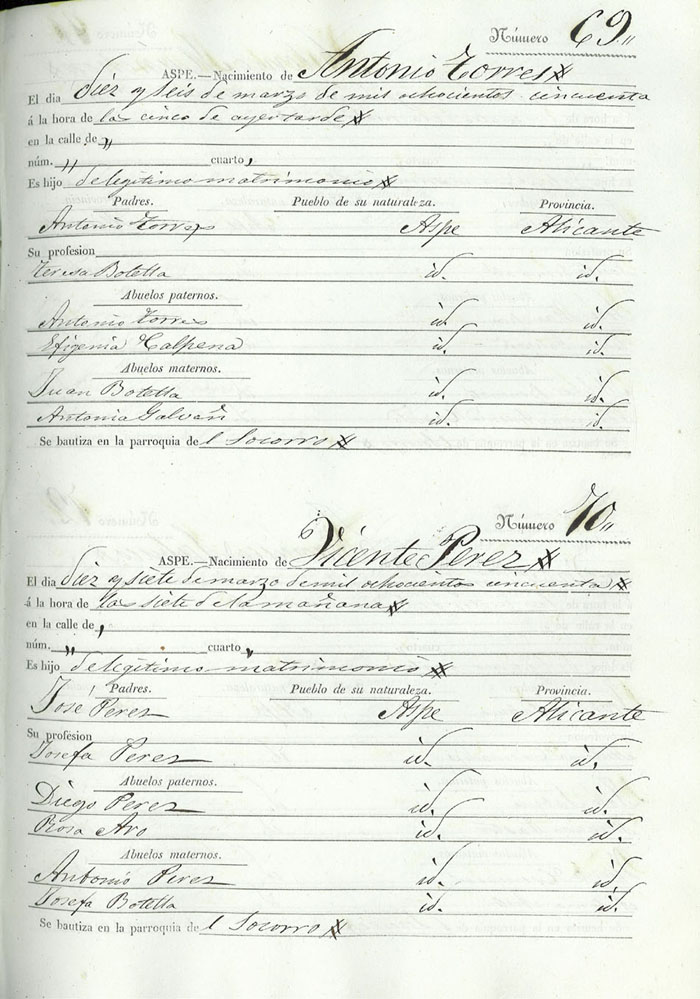 Número 69,,
ASPE.—Nacimiento de Antonio Torres
El dia diez y seis de marzo de mil ochocientos cincuenta
á la hora de las cinco de ayer tarde
en la calle de ,,
núm. ,, cuarto ,
Es hijo de legitimo matrimonio
Padres. Pueblo de su naturaleza. Provincia.
Antonio Torres Aspe Alicante
Su profesion
Teresa Botella id. id.
Abuelos paternos.
Antonio Torres id. id.
Efigenia Calpena id. id.
Abuelos maternos.
Juan Botella id. id.
Antonia Galvañ id. id.
Se bautiza en la parroquia del Socorro
Número 70,,
ASPE.—Nacimiento de Vicente Perez
El dia diez y siete de marzo de mil ochocientos cincuenta
á la hora de las siete de la mañana
en la calle de ,
núm. ,, cuarto ,,
Es hijo de legitimo matrimonio
Padres. Pueblo de su naturaleza. Provincia.
Jose Perez Aspe Alicante
Su profésion
Josefa Perez id. id.
Abuelos paternos.
Diego Perez id. id.
Rosa Avo id. id.
Abuelos maternos.
Antonio Perez id. id.
Josefa Botella id. id.
Se bautiza en la parroquia del Socorro